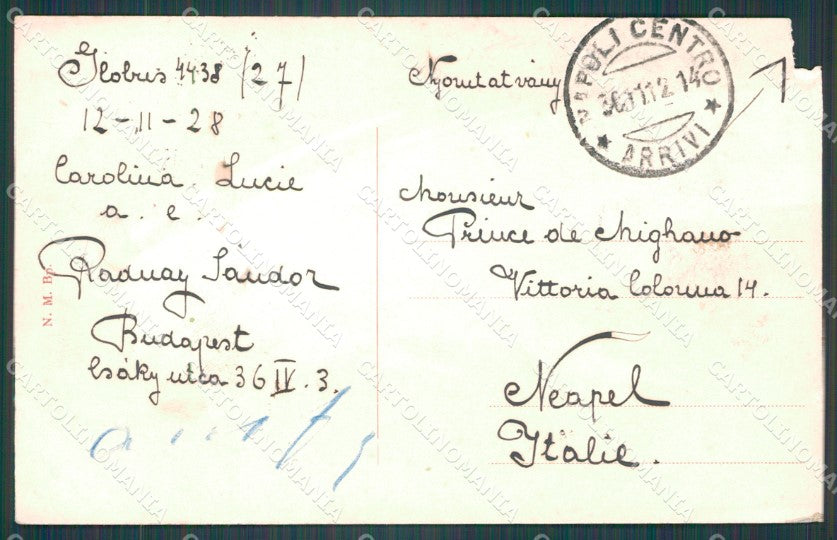 Globus 4438 (27)
12-11-28
Carolina Lucie
a. e.
Radnay Sándor
Budapest
Csáky utca 36 IV. 3.
N. M. Bp.
Nyomtatvány
NAPOLI CENTRO
ARRIVI
Monsieur
Prince de Mighano
Vittoria Colonna 14.
Neapel
Italie.
CARTOLINOMANIA